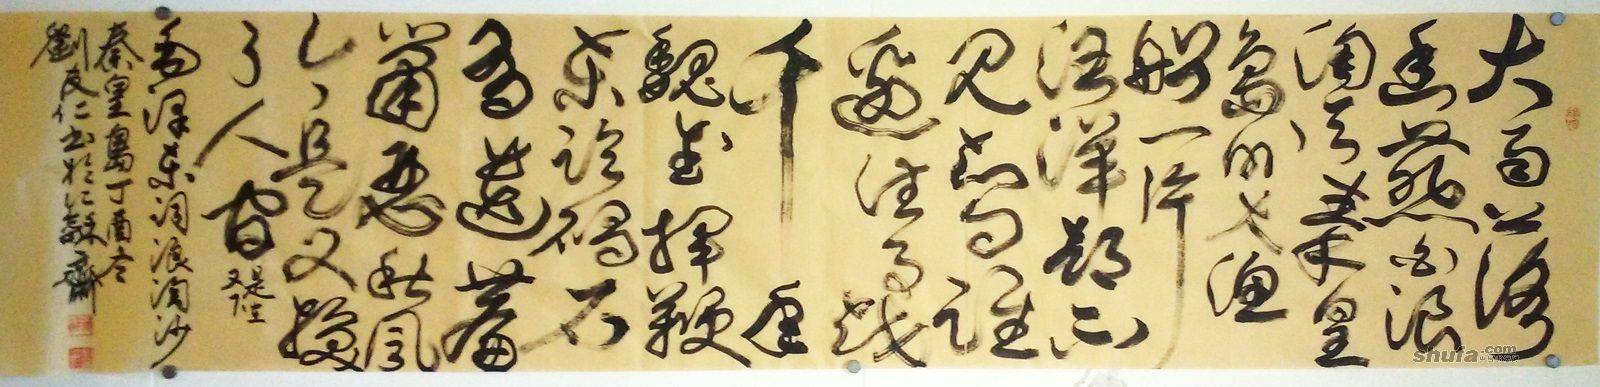 大雨落
幽燕白浪
淘天秦皇
島外打魚
船一片
汪洋都不
見知向誰
邊往事越
千年
魏武揮鞭
東臨碣石
有遺篇
蕭瑟秋風
今是又換
了人間 是又
毛澤東詞浪淘沙
秦皇島丁酉冬
劉友仁書於 齋
shufa.com